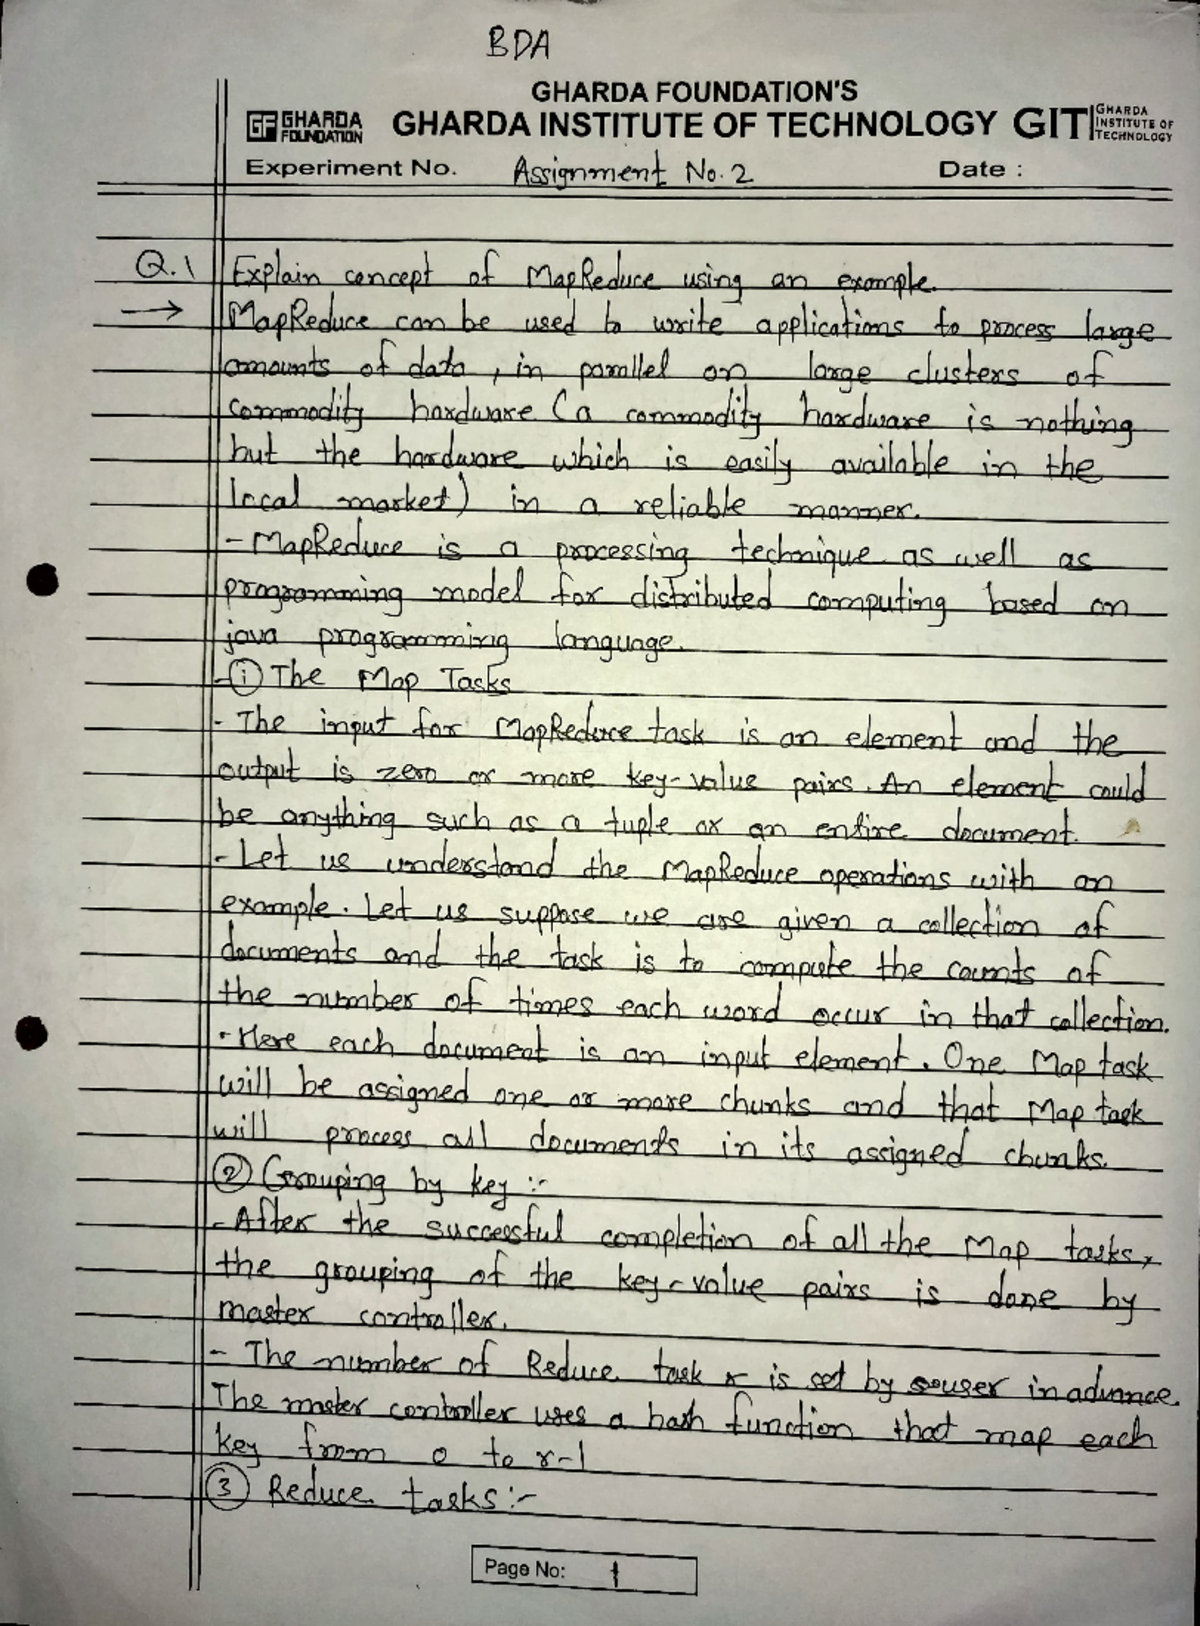 BDA
GHARDA FOUNDATION'S
GF GHARDA FOUNDATION GHARDA INSTITUTE OF TECHNOLOGY GIT GHARDA INSTITUTE OF TECHNOLOGY
Experiment No. Assignment No. 2 Date :
Q.1 Explain concept of MapReduce using an example.
→ MapReduce can be used to write applications to process large
amounts of data, in parallel on large clusters of
commodity hardware (a commodity hardware is nothing
but the hardware which is easily available in the
local market) in a reliable manner.
- MapReduce is a processing technique as well as
programming model for distributed computing based on
java programming language.
- ① The Map Tasks
- The input for MapReduce task is an element and the
output is zero or more key-value pairs. An element could
be anything such as a tuple or an entire document.
- Let us understand the MapReduce operations with an
example. Let us suppose we are given a collection of
documents and the task is to compute the counts of
the number of times each word occur in that collection.
- Here each document is an input element. One Map task
will be assigned one or more chunks and that Map task
will process all documents in its assigned chunks.
② Grouping by key :-
- After the successful completion of all the Map tasks,
the grouping of the key-value pairs is done by
master controller.
- The number of Reduce task r is set by user in advance.
The master controller uses a hash function that map each
key from 0 to r-1
③ Reduce tasks:-
Page No: 1